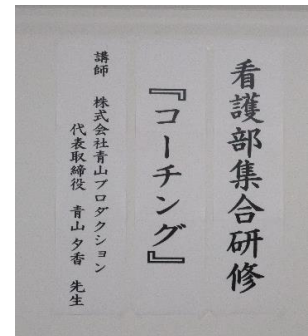 看護部集合研修
『コーチング』
講師 株式会社青山プロダクション
代表取締役 青山夕香 先生